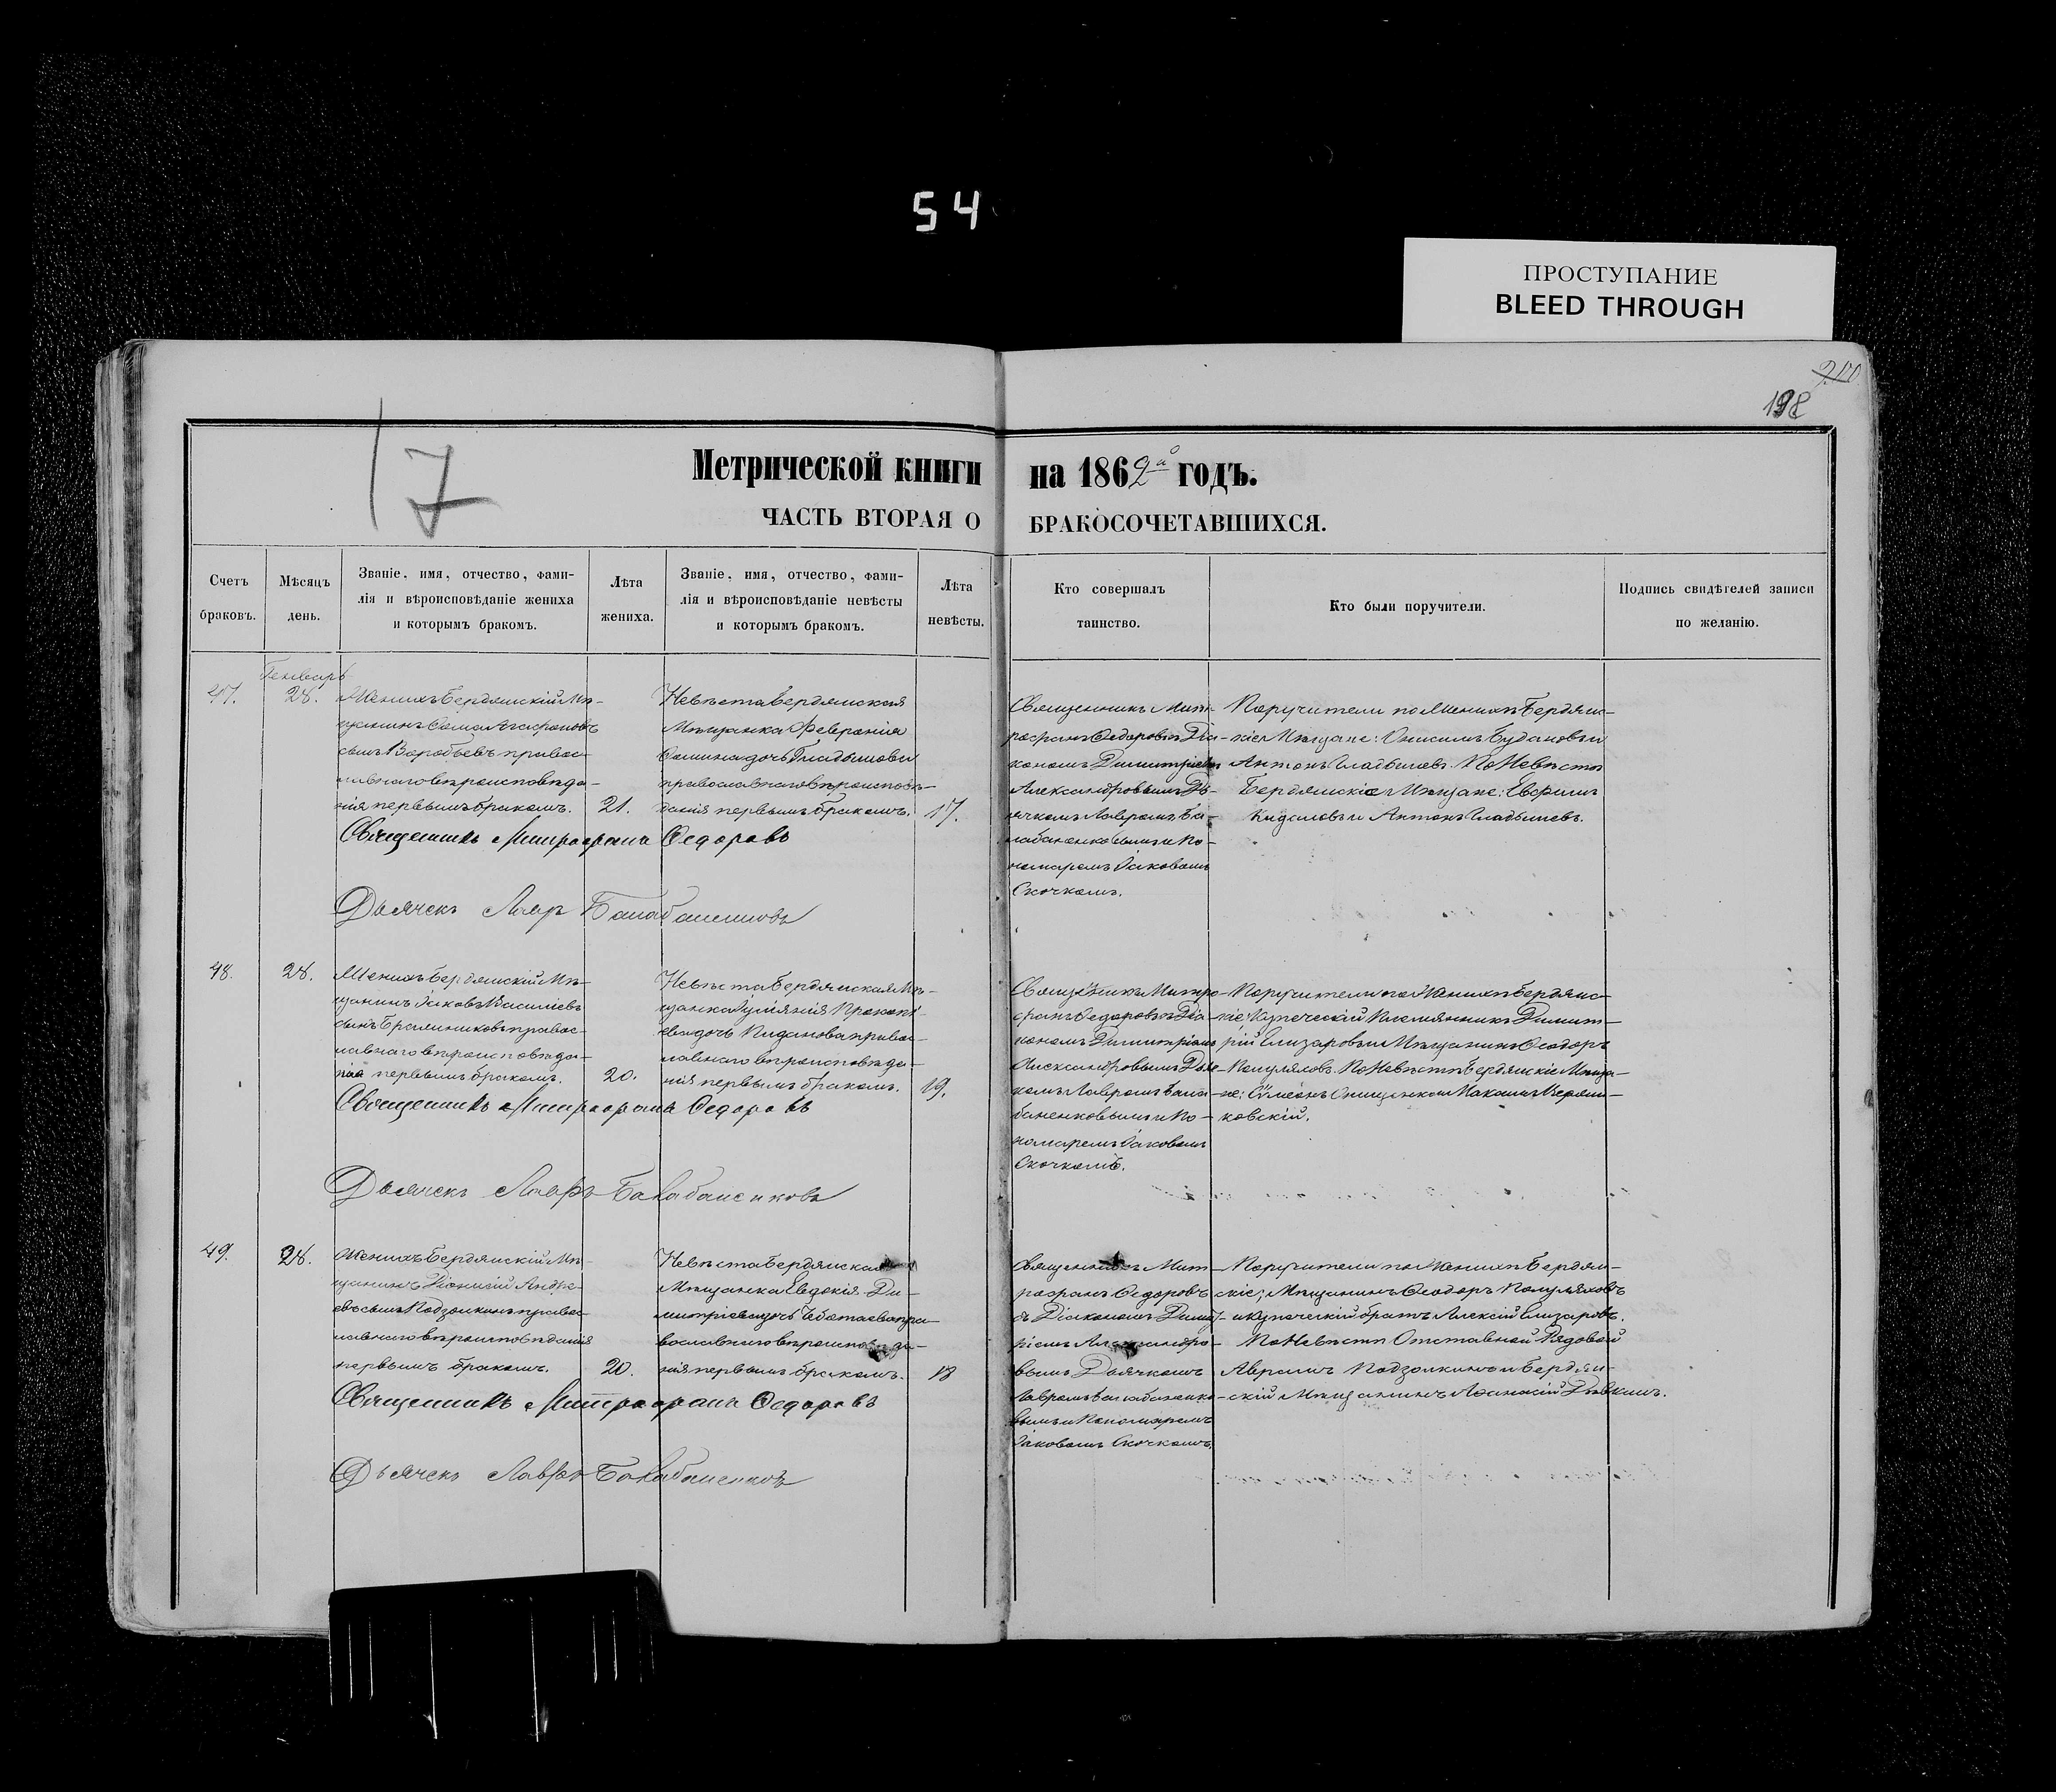 54
ПРОСТУПАНИЕ
BLEED THROUGH
198
17
Метрической книги на 1862 годъ.
ЧАСТЬ ВТОРАЯ О БРАКОСОЧЕТАВШИХСЯ.
Счетъ браковъ.
Мѣсяцъ день.
Званіе, имя, отчество, фами-
лія и вѣроисповѣданіе жениха
и которымъ бракомъ.
Лѣта жениха.
Званіе, имя, отчество, фами-
лія и вѣроисповѣданіе невѣсты
и которымъ бракомъ.
Лѣта невѣсты.
Кто совершалъ
таинство.
Кто были поручители.
Подпись свидѣтелей записи
по желанію.
Генварь
47.
28.
Женихъ Бердянскій Мѣ-
щанинъ
сынъ Воробьевъ правос-
лавнаго вѣроисповѣда-
нія первымъ бракомъ.
21.
Невѣста Бердянская
Мѣщанка Февронія
дочь Гладышова
православнаго вѣроисповѣ-
данія первымъ бракомъ.
17.
Священникъ Мит-
рофанъ Федоровъ съ Діа-
кономъ Димитріемъ
Александровымъ Дь-
ячкомъ Лавромъ Ба-
лабаненковымъ и По-
номаремъ Іаковомъ
Скочкомъ.
Поручители по Женихѣ Бердянс-
кіе Мѣщане: Онисимъ Будановъ и
Антонъ Гладышевъ. По Невѣстѣ
Бердянскіе Мѣщане: Евфимъ
и Антонъ Гладышевъ.
Священникъ Митрофанъ Федоровъ
Дьячекъ Лавръ Балабаненковъ
48.
28.
Женихъ Бердянскій Мѣ-
щанинъ Іаковъ Василіевъ
сынъ правос-
лавнаго вѣроисповѣда-
нія первымъ бракомъ.
20.
Невѣста Бердянская Мѣ-
щанка Іуліянія Прокопі-
ева дочь правос-
лавнаго вѣроисповѣда-
нія первымъ бракомъ.
19.
Священникъ Митро-
фанъ Федоровъ съ Діа-
кономъ Димитріемъ
Александровымъ Дьяч-
комъ Лавромъ Бала-
баненковымъ и По-
номаремъ Іаковомъ
Скочкомъ.
Поручители по Женихѣ Бердянс-
кіе; Купеческій Племянникъ Димит-
рій Елизаровъ и Мѣщанинъ Феодоръ
Полуляховъ. По Невѣстѣ Бердянскіе Мѣща-
не: Сѵмеонъ
ковскій.
Священникъ Митрофанъ Федоровъ
Дьячекъ Лавръ Балабаненковъ
49.
28.
Женихъ Бердянскій Мѣ-
щанинъ Діонисій Андре-
евъ сынъ Подзолкинъ правос-
лавнаго вѣроисповѣданія
первымъ бракомъ.
20.
Невѣста Бердянская
Мѣщанка Евдокія Ди-
митріева дочь Чеботаева пра-
вославнаго вѣроисповѣда-
нія первымъ бракомъ.
18
Священникъ Мит-
рофанъ Федоровъ
съ Діакономъ Димит-
ріемъ Александро-
вымъ Дьячкомъ
Лавромъ Балабаненко-
вымъ и Пономаремъ
Іаковомъ Скочкомъ.
Поручители по Женихѣ Бердян-
скіе; Мѣщанинъ Феодоръ Полуляховъ
и Купеческій братъ Алексій Елизаровъ.
По Невѣстѣ Отставной Рядовой
Авраамъ Подзолкинъ и Бердян-
скій Мѣщанинъ Афанасій
Священникъ Митрофанъ Федоровъ
Дьячекъ Лавръ Балабаненковъ